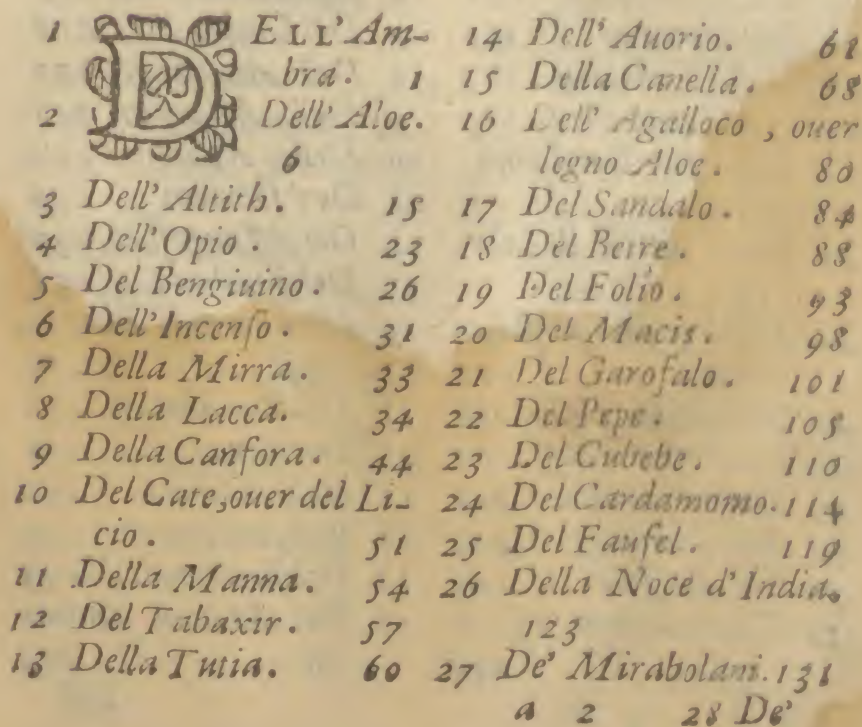 1 DELL'Am-
bra. 1
2 Dell'Aloe.
6
3 Dell'Altith. 15
4 Dell'Opio. 23
5 Del Bengiuino. 26
6 Dell'Incenso. 31
7 Della Mirra. 33
8 Della Lacca. 34
9 Della Canfora. 44
10 Del Cate, ouer del Li-
cio. 51
11 Della Manna. 54
12 Del Tabaxir. 57
13 Della Tutia. 60
14 Dell'Auorio. 61
15 Della Canella. 68
16 Dell'Agalloco, ouer
legno Aloe. 80
17 Del Sandalo. 84
18 Del Betre. 88
19 Del Folio. 93
20 Del Macis. 98
21 Del Garofalo. 101
22 Del Pepe. 105
23 Del Cubebe. 110
24 Del Cardamomo. 114
25 Del Faufel. 119
26 Della Noce d'India.
123
27 De' Mirabolani. 131
a 2 28 De'